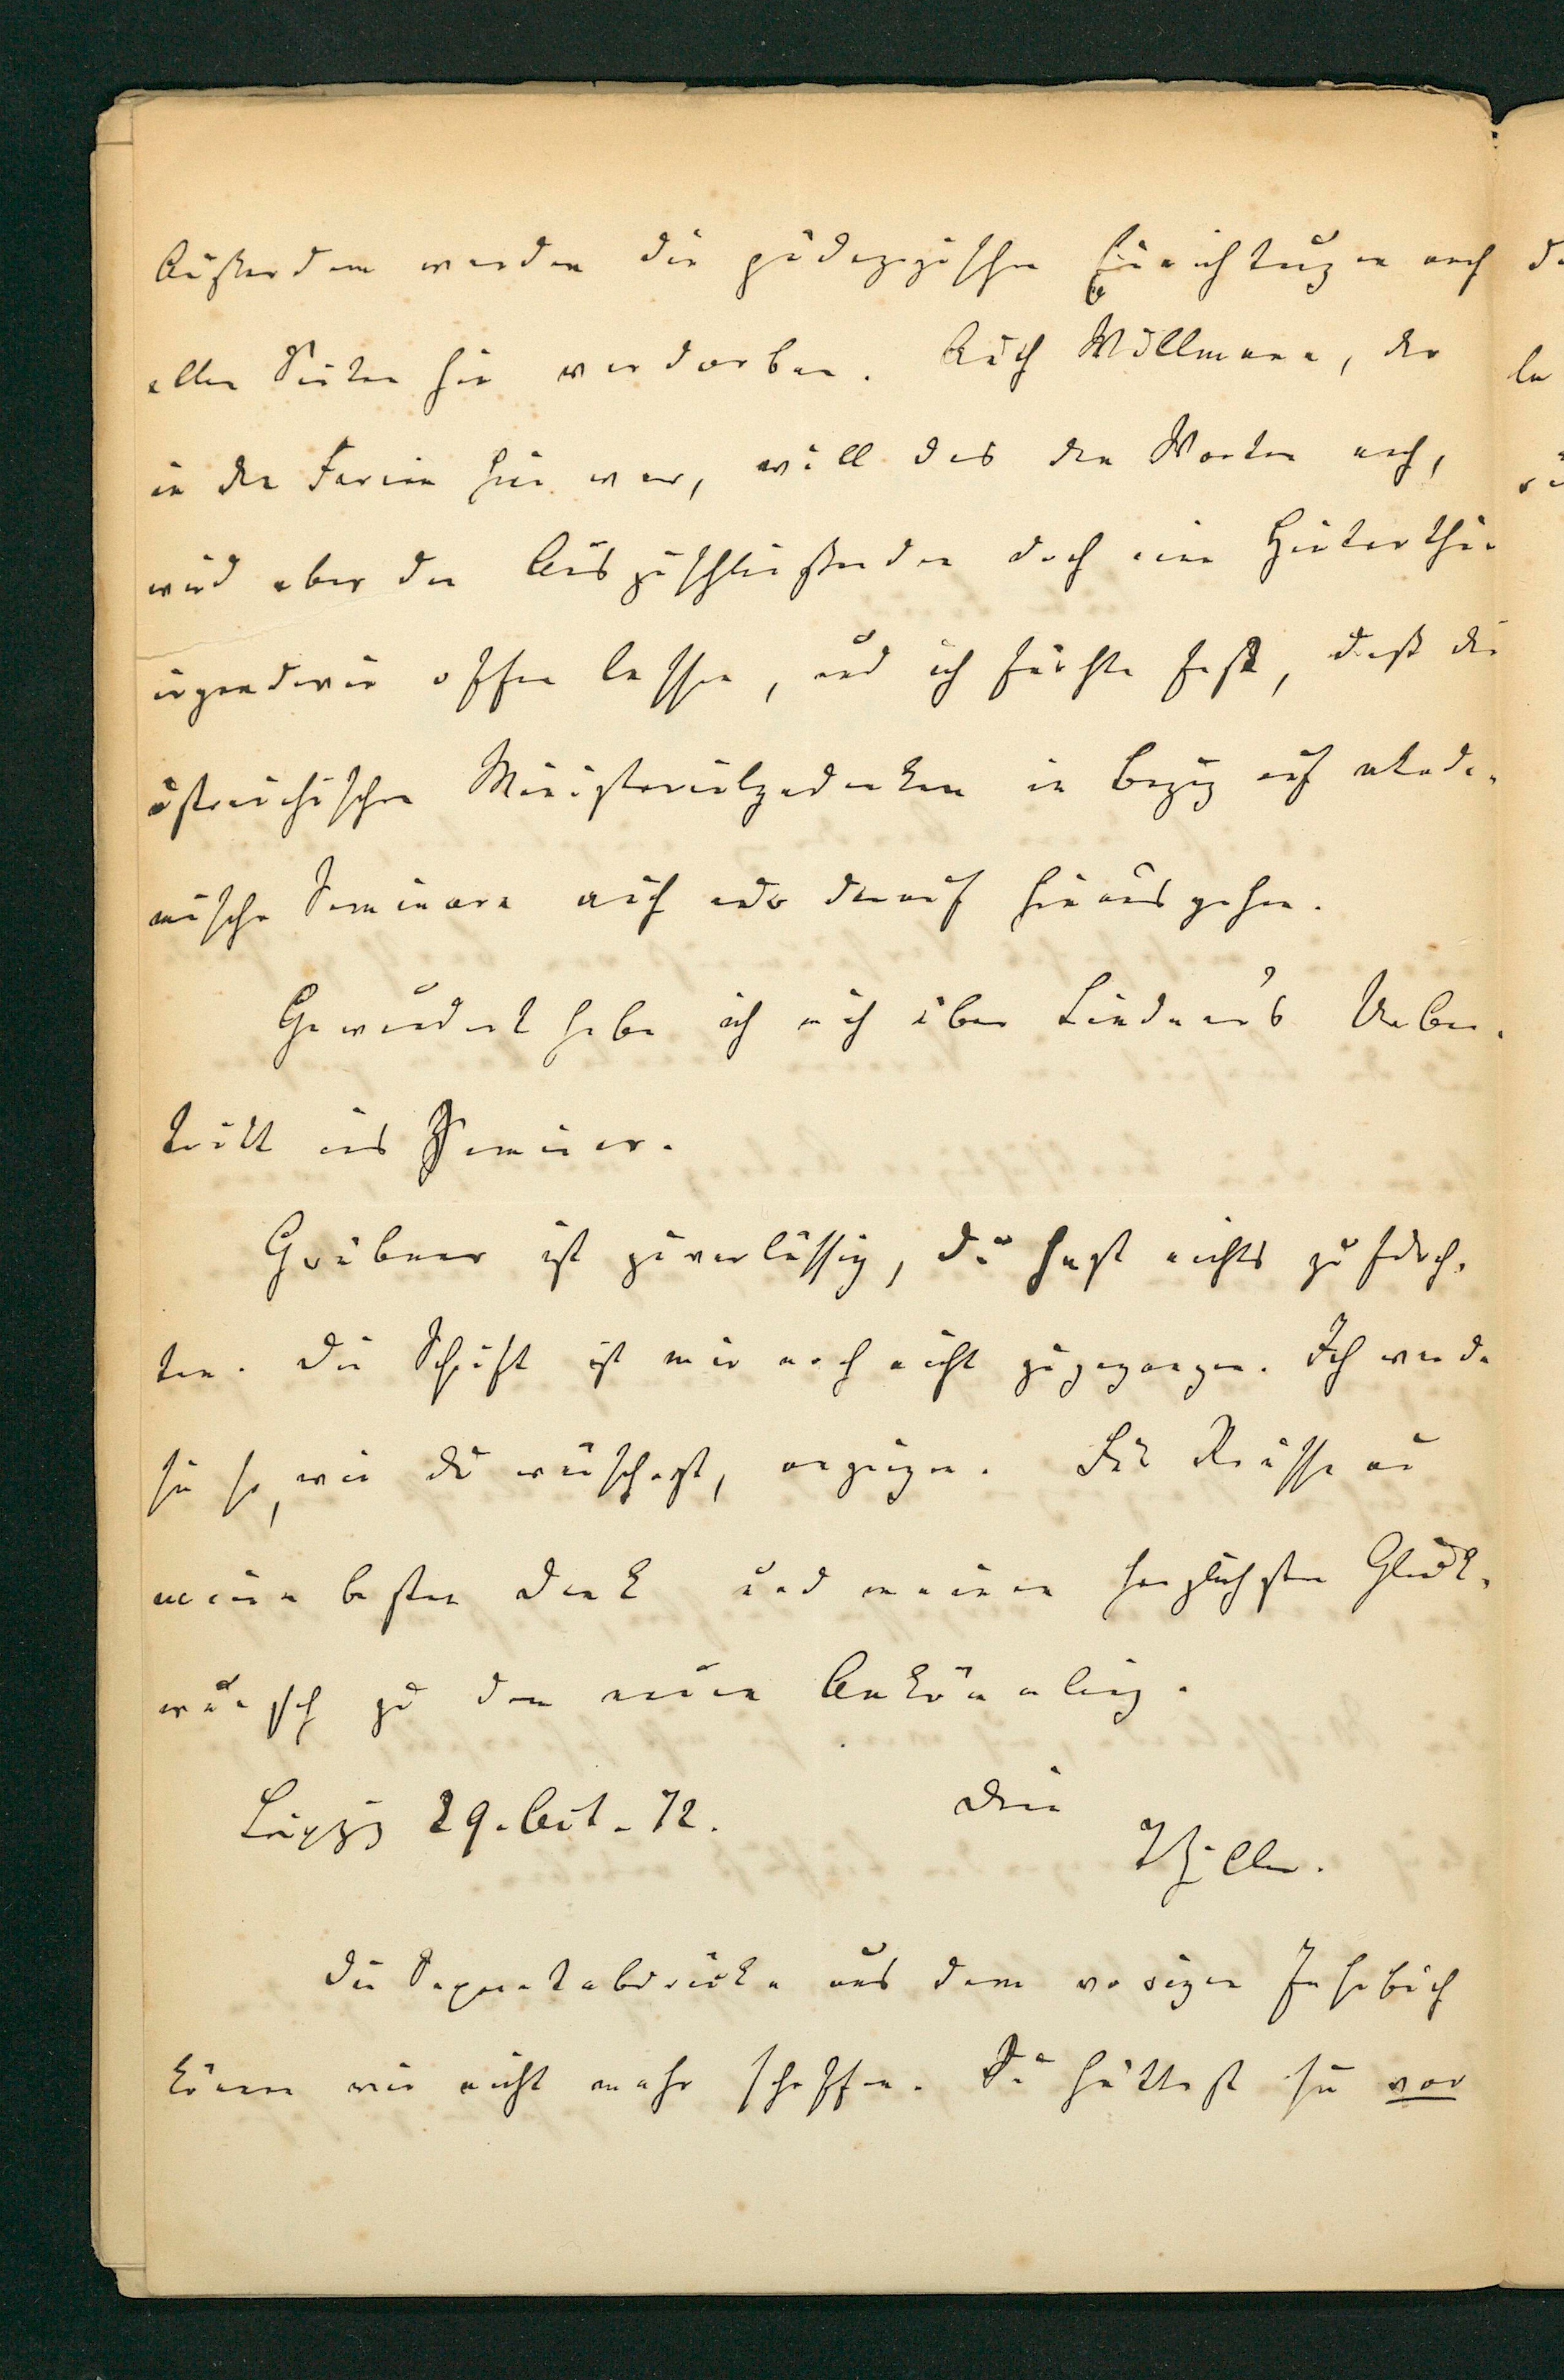 Außerdem werden die pädagogischen Einrichtungen nach
allen Seiten hin verdorben. Auch Willmann, der
in den Ferien hier war, will das den Worten nach,
wird aber den Auszuschließenden doch eine Hinterthür
irgendwie offen lassen, und ich fürchte fast, daß die
östreichischen Ministerialgedanken in Bezug auf akade-
mische Seminare auch nur darauf hinausgehen.
Gewundert habe ich mich über Lindner's Ueber-
tritt ins Seminar.
Gräbner ist zuverlässig, Du hast nichts zu fürch-
ten. Die Schrift ist mir noch nicht zugegangen. Ich werde
sie so, wie Du wünschest, anzeigen. Für Rousseau
meinen besten Dank und meinen herzlichsten Glück-
wunsch zu dem neuen Ankömmling.
Leipzig 29. Oct. 72.
Dein
Ziller.
Die Separatabdrücke aus dem vorigen Jahrbuch
können wir nicht mehr schaffen. Du hättest sie vor